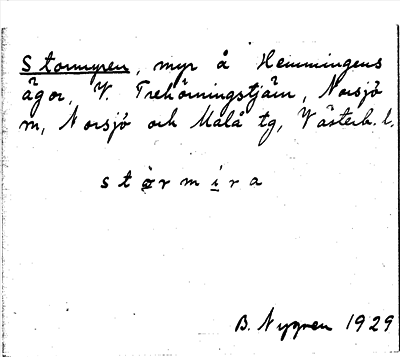 Stormyren, myr å Hemmingens
ägor, V. Trehörningstjärn, Norsjö
sn, Norsjö och Malå tg, Västerb. l.
størmira
B. Nygren 1929